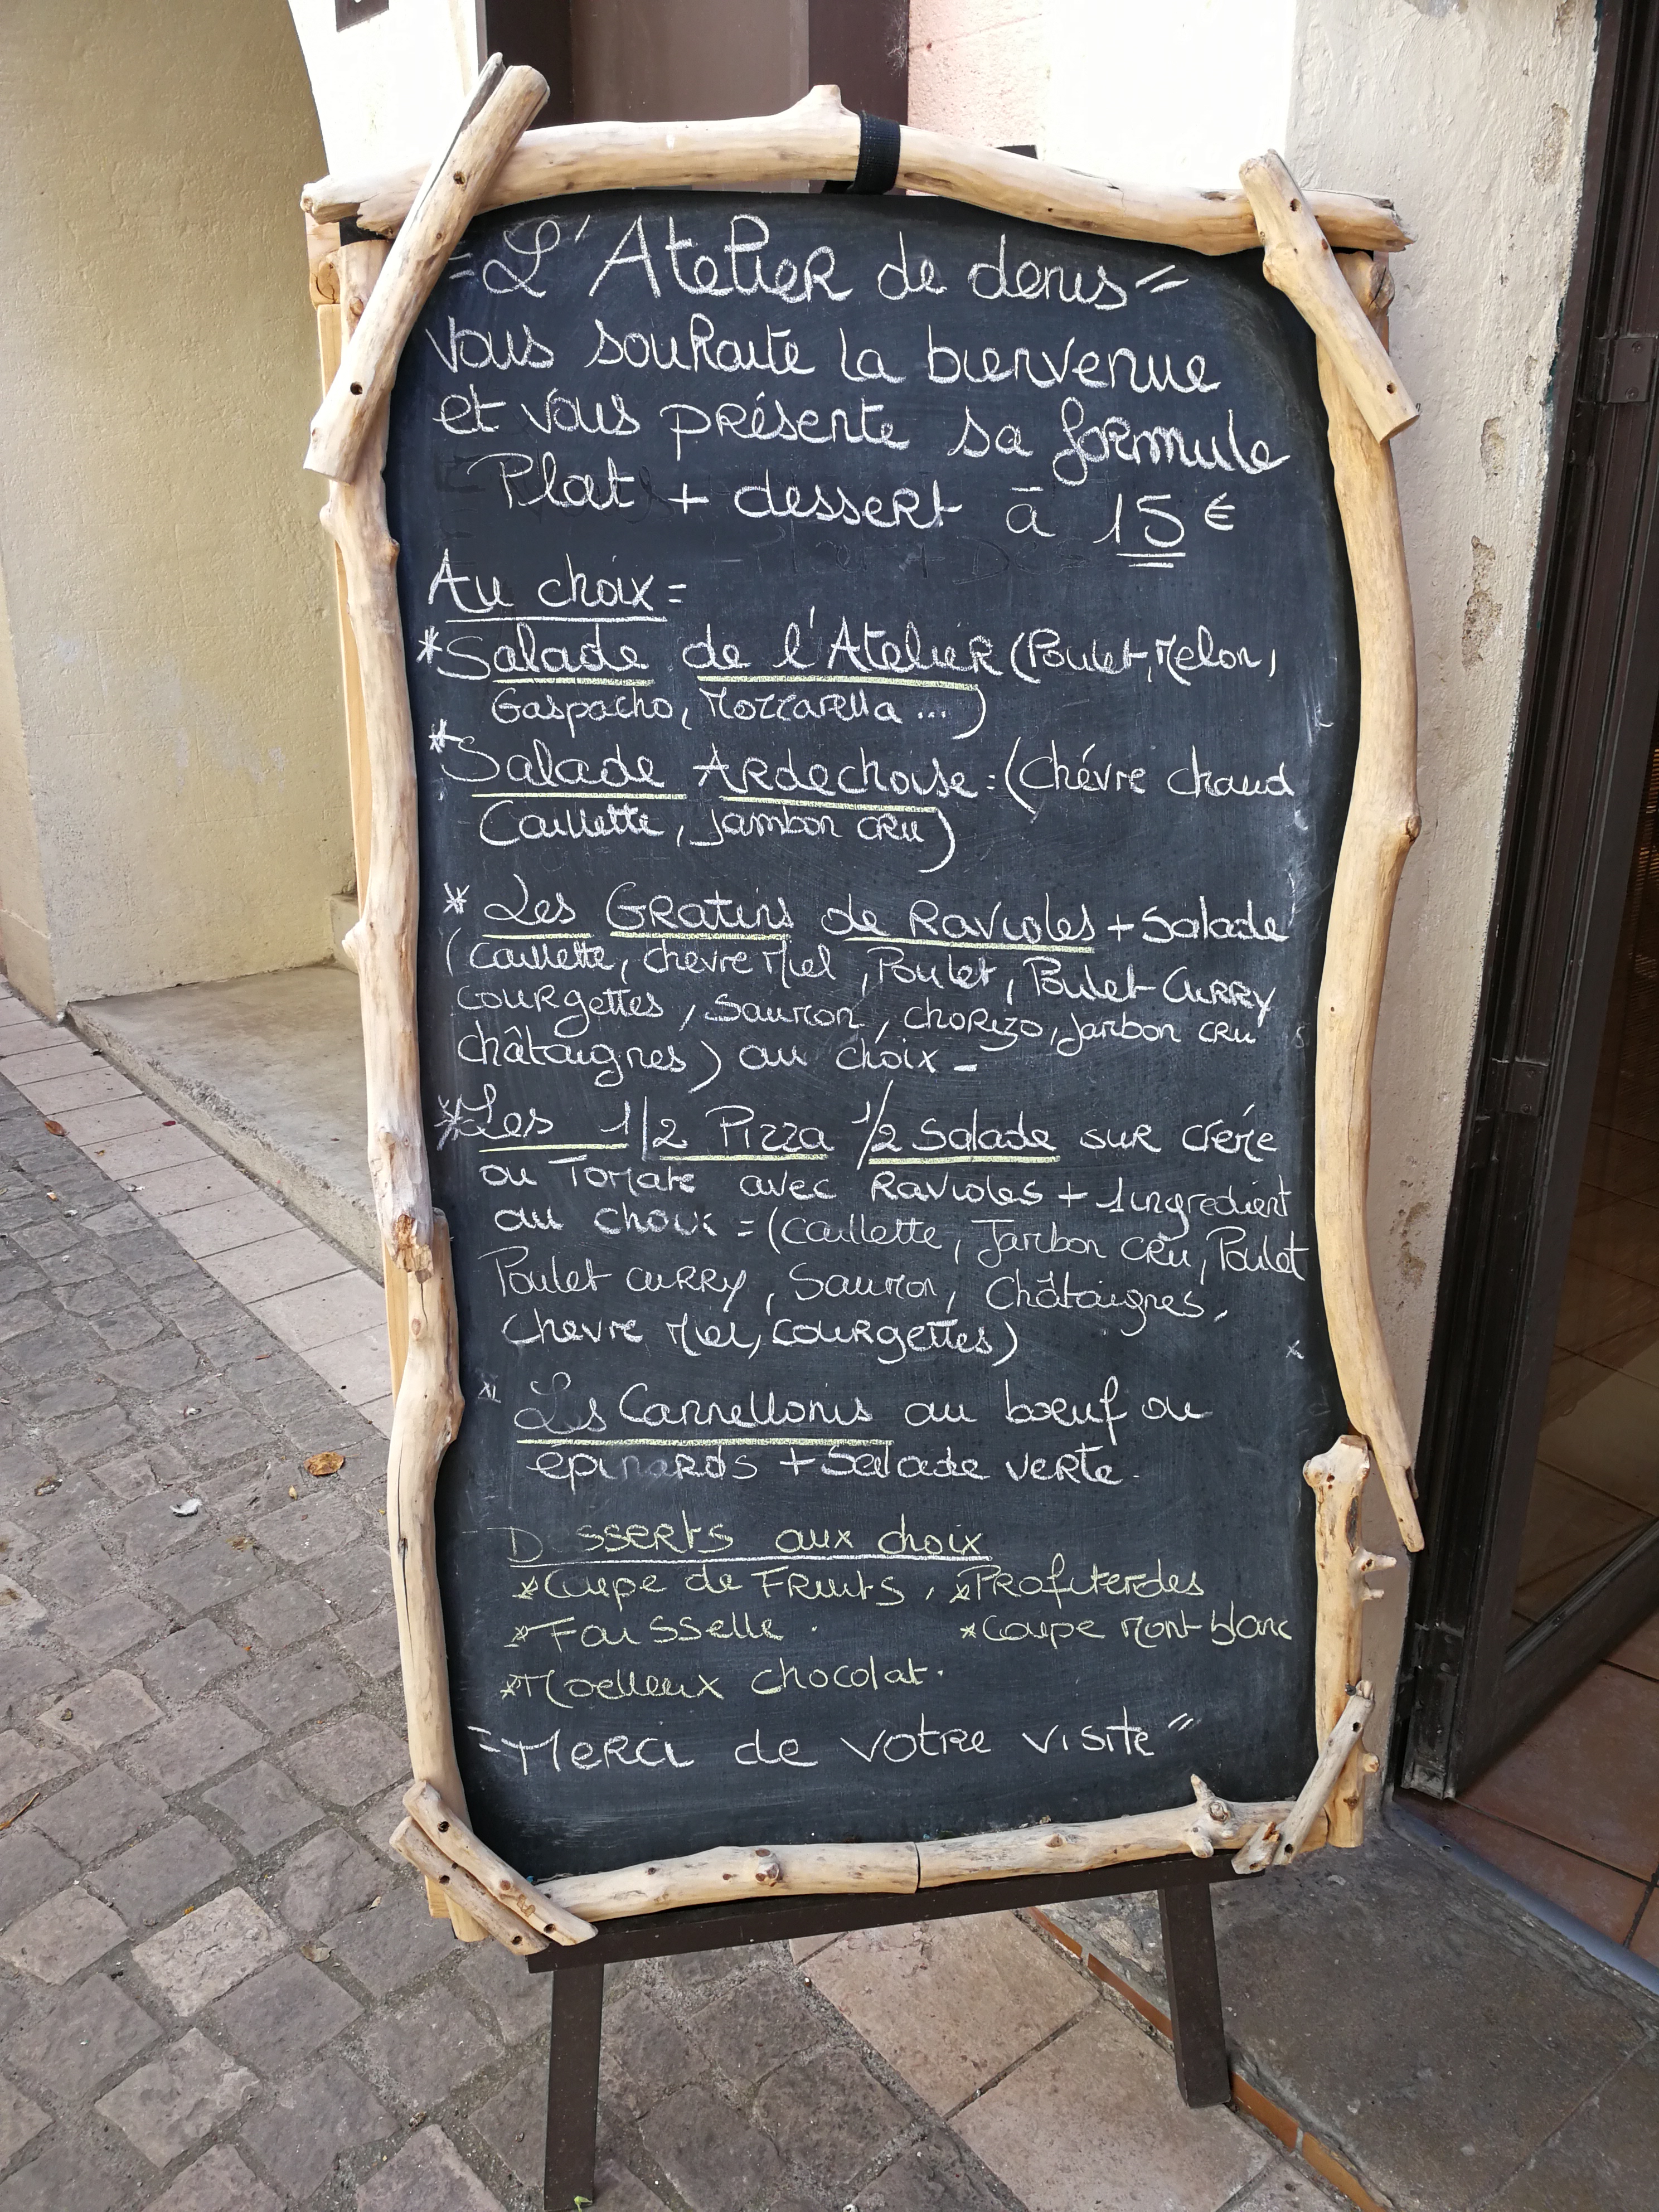 ="L'Atelier de denis"
vous souhaite la bienvenue
et vous présente sa formule
Plat + dessert à 15 €
Au choix =
*Salade de l'Atelier (Poulet, Melon,
Gaspacho, Mozzarella ...)
*Salade Ardechoise : (Chévre chaud
Caillette, jambon cru)
* Les Gratins de Ravioles + Salade
(Caillette, chevre Miel, Poulet, Poulet Curry
courgettes, Saumon, chorizo, jambon cru
châtaignes) au choix -
*Les 1/2 Pizza 1/2 Salade sur crème
ou Tomate avec Ravioles + 1 ingredient
au choix = (Caillette, Jambon cru, Poulet
Poulet curry, Saumon, Châtaignes,
Chevre Miel, Courgettes)
* Les Cannellonis au bœuf ou
épinards + Salade verte.
D sserts aux choix
*Coupe de Fruits, *Profiteroles
*Faisselle. *Coupe Mont-blanc
*Moelleux chocolat.
="Merci de votre visite"